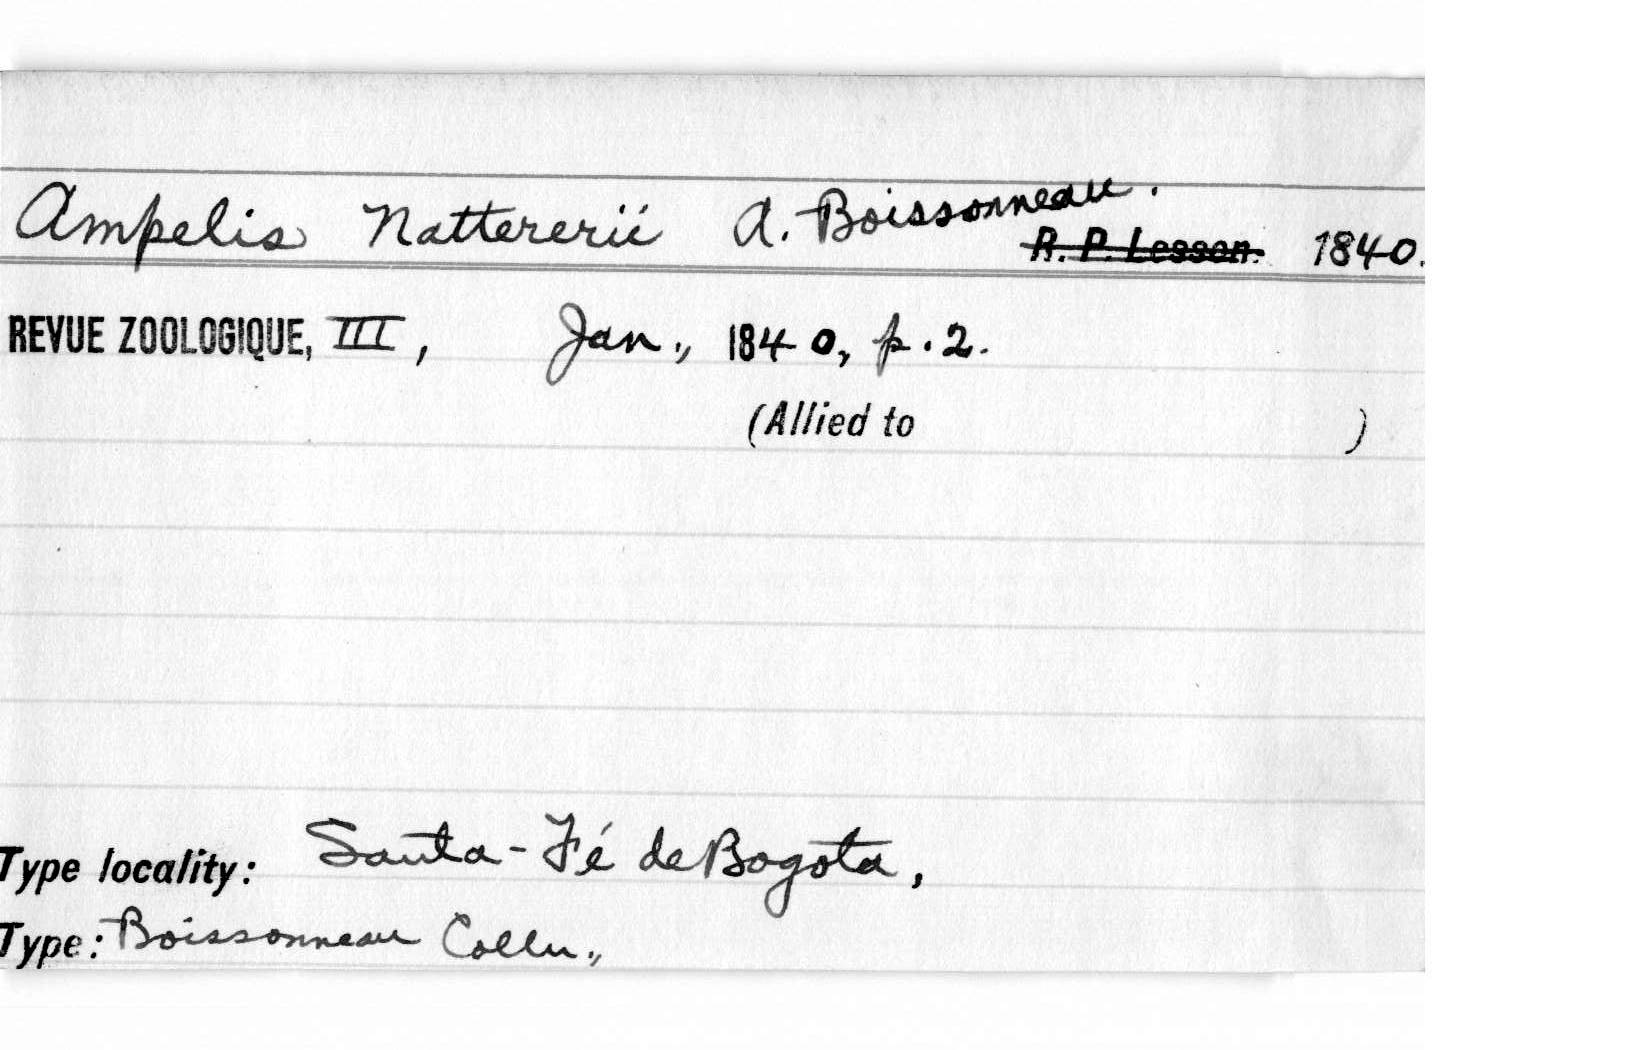 Ampelis Nattererii A. Boissonneau.
R. P. Lesson. 1840.
REVUE ZOOLOGIQUE, III, Jan., 1840, p. 2.
(Allied to )
Type locality: Santa-Fé de Bogota,
Type: Boissonneau Colln.,